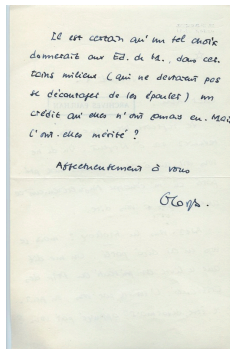 Il est certain qu'un tel choix
donnerait aux Ed. de M., dans cer-
tains milieux (qui ne devraient pas
se décourager de les épauler) un
crédit qu'elles n'ont jamais eu. Mais
l'ont-elles mérité ?
Affectueusement à vous